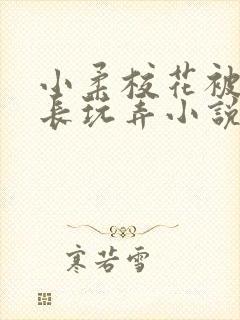 小柔校花被
长玩弄小説
寒若雪